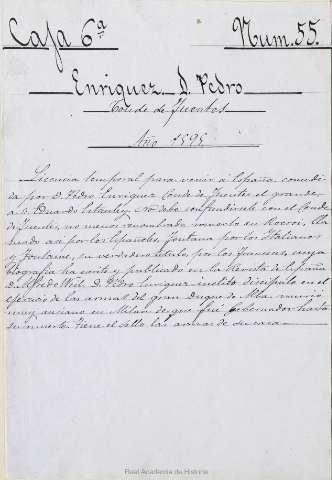 Caja 6ª Num. 55.
Enriquez D. Pedro
Conde de Fuentes
Año 1595
Licencia temporal para venir à España concedi-
da por D. Pedro Enriquez Conde de Fuentes el grande,
a D. Eduardo no debe confundirsele con el Conde
de Fuentes, no menos renombrado muerto en Rocroi, lla
mado asi por los Españoles, Fontana por los Italianos
y Fontaine, su verdadero titulo por los franceses, cuya
biografia ha escrito y publicado en la Revista de España
D. Alfredo Weil. D. Pedro Enriquez inclito discipulo en el
ejercicio de las armas del gran Duque de Alba murió
muy anciano en Milan de que fué Gobernador hasta
su muerte. Tiene el sello las armas de su casa.
Real Academia de Historia